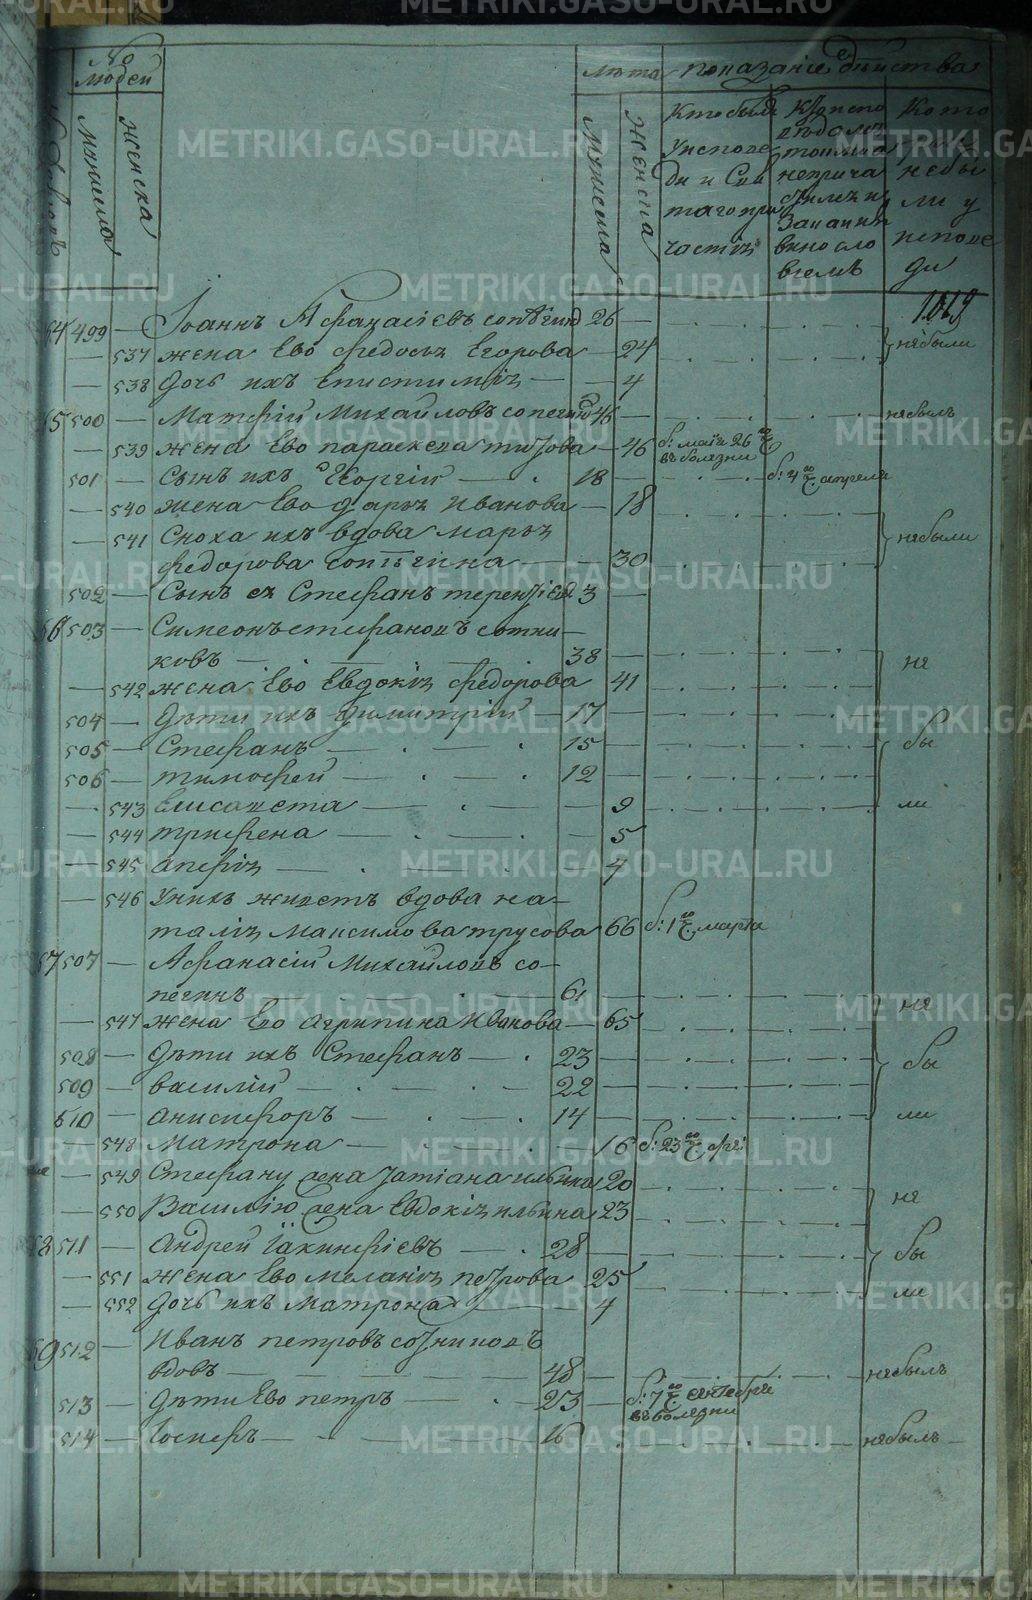 METRIKI.GASO-URAL.RU
№ людей
лѣта показаніе дѣйства
мужеска
женска
мужеска
женска
Кто былъ
Уиспове
ди и Свя
таго при
частія
Кто испо
вѣдался
токмо а
непріча
стился и
За каким
виносло
віемъ
Кото
рые
небы
ли у
испове
ди
1019
64 499 — Іоаннъ Афанасіевъ сопѣгинъ 26
небыли
— 537 жена Ево Федосья Егорова — 24
— 538 дочь ихъ Епистимія — 4
65 500 — Матфей Михайловъ сопегинъ 46 небылъ
— 539 жена Ево параскева титова — 46 б: маія 26 го въ болезни
501 — Сынъ ихъ Георгій — 18 б: 4 го апреля
— 540 жена Ево дарья Иванова — 18
— 541 Сноха ихъ вдова марья небыли
федорова сопѣгина — 30
502 — Сынъ ея Стефанъ терентіевъ 3
66 503 — Симеонъ стефановъ сотни-
ковъ — 38 не
— 542 жена Ево Евдокія федорова 41
504 — дѣти ихъ димитрій — 17
505 — Стефанъ — 15 бы
506 — тимофей — 12
— 543 Елисавета — 9 ли
— 544 трифена — 5
— 545 апфія — 4
— 546 Унихъ живетъ вдова на-
талія Максимова трусова 66 б: 1 го марта
67 507 — Афанасій Михайловъ со-
пегинъ — 61 не
— 547 жена Ево агрипина Иванова — 65
508 — дѣти ихъ Стефанъ — 23 бы
509 — василій — 22
510 — анисифоръ — 14 ли
— 548 матрона — 16 б: 23 го
— 549 Стефану жена татіана ильина 20 не
— 550 Василію жена Евдокія ильина 23
68 511 — Андрей Іакинфіевъ — 28 бы
— 551 жена Ево меланія петрова 25 ли
— 552 дочь ихъ матрона 4
69 512 — Иванъ петровъ сотниковъ
вдовъ — 48 небылъ
513 — дѣти Ево петръ — 23 б: 7 го сентебря въ болезни
514 — Іосифъ — 16 небылъ